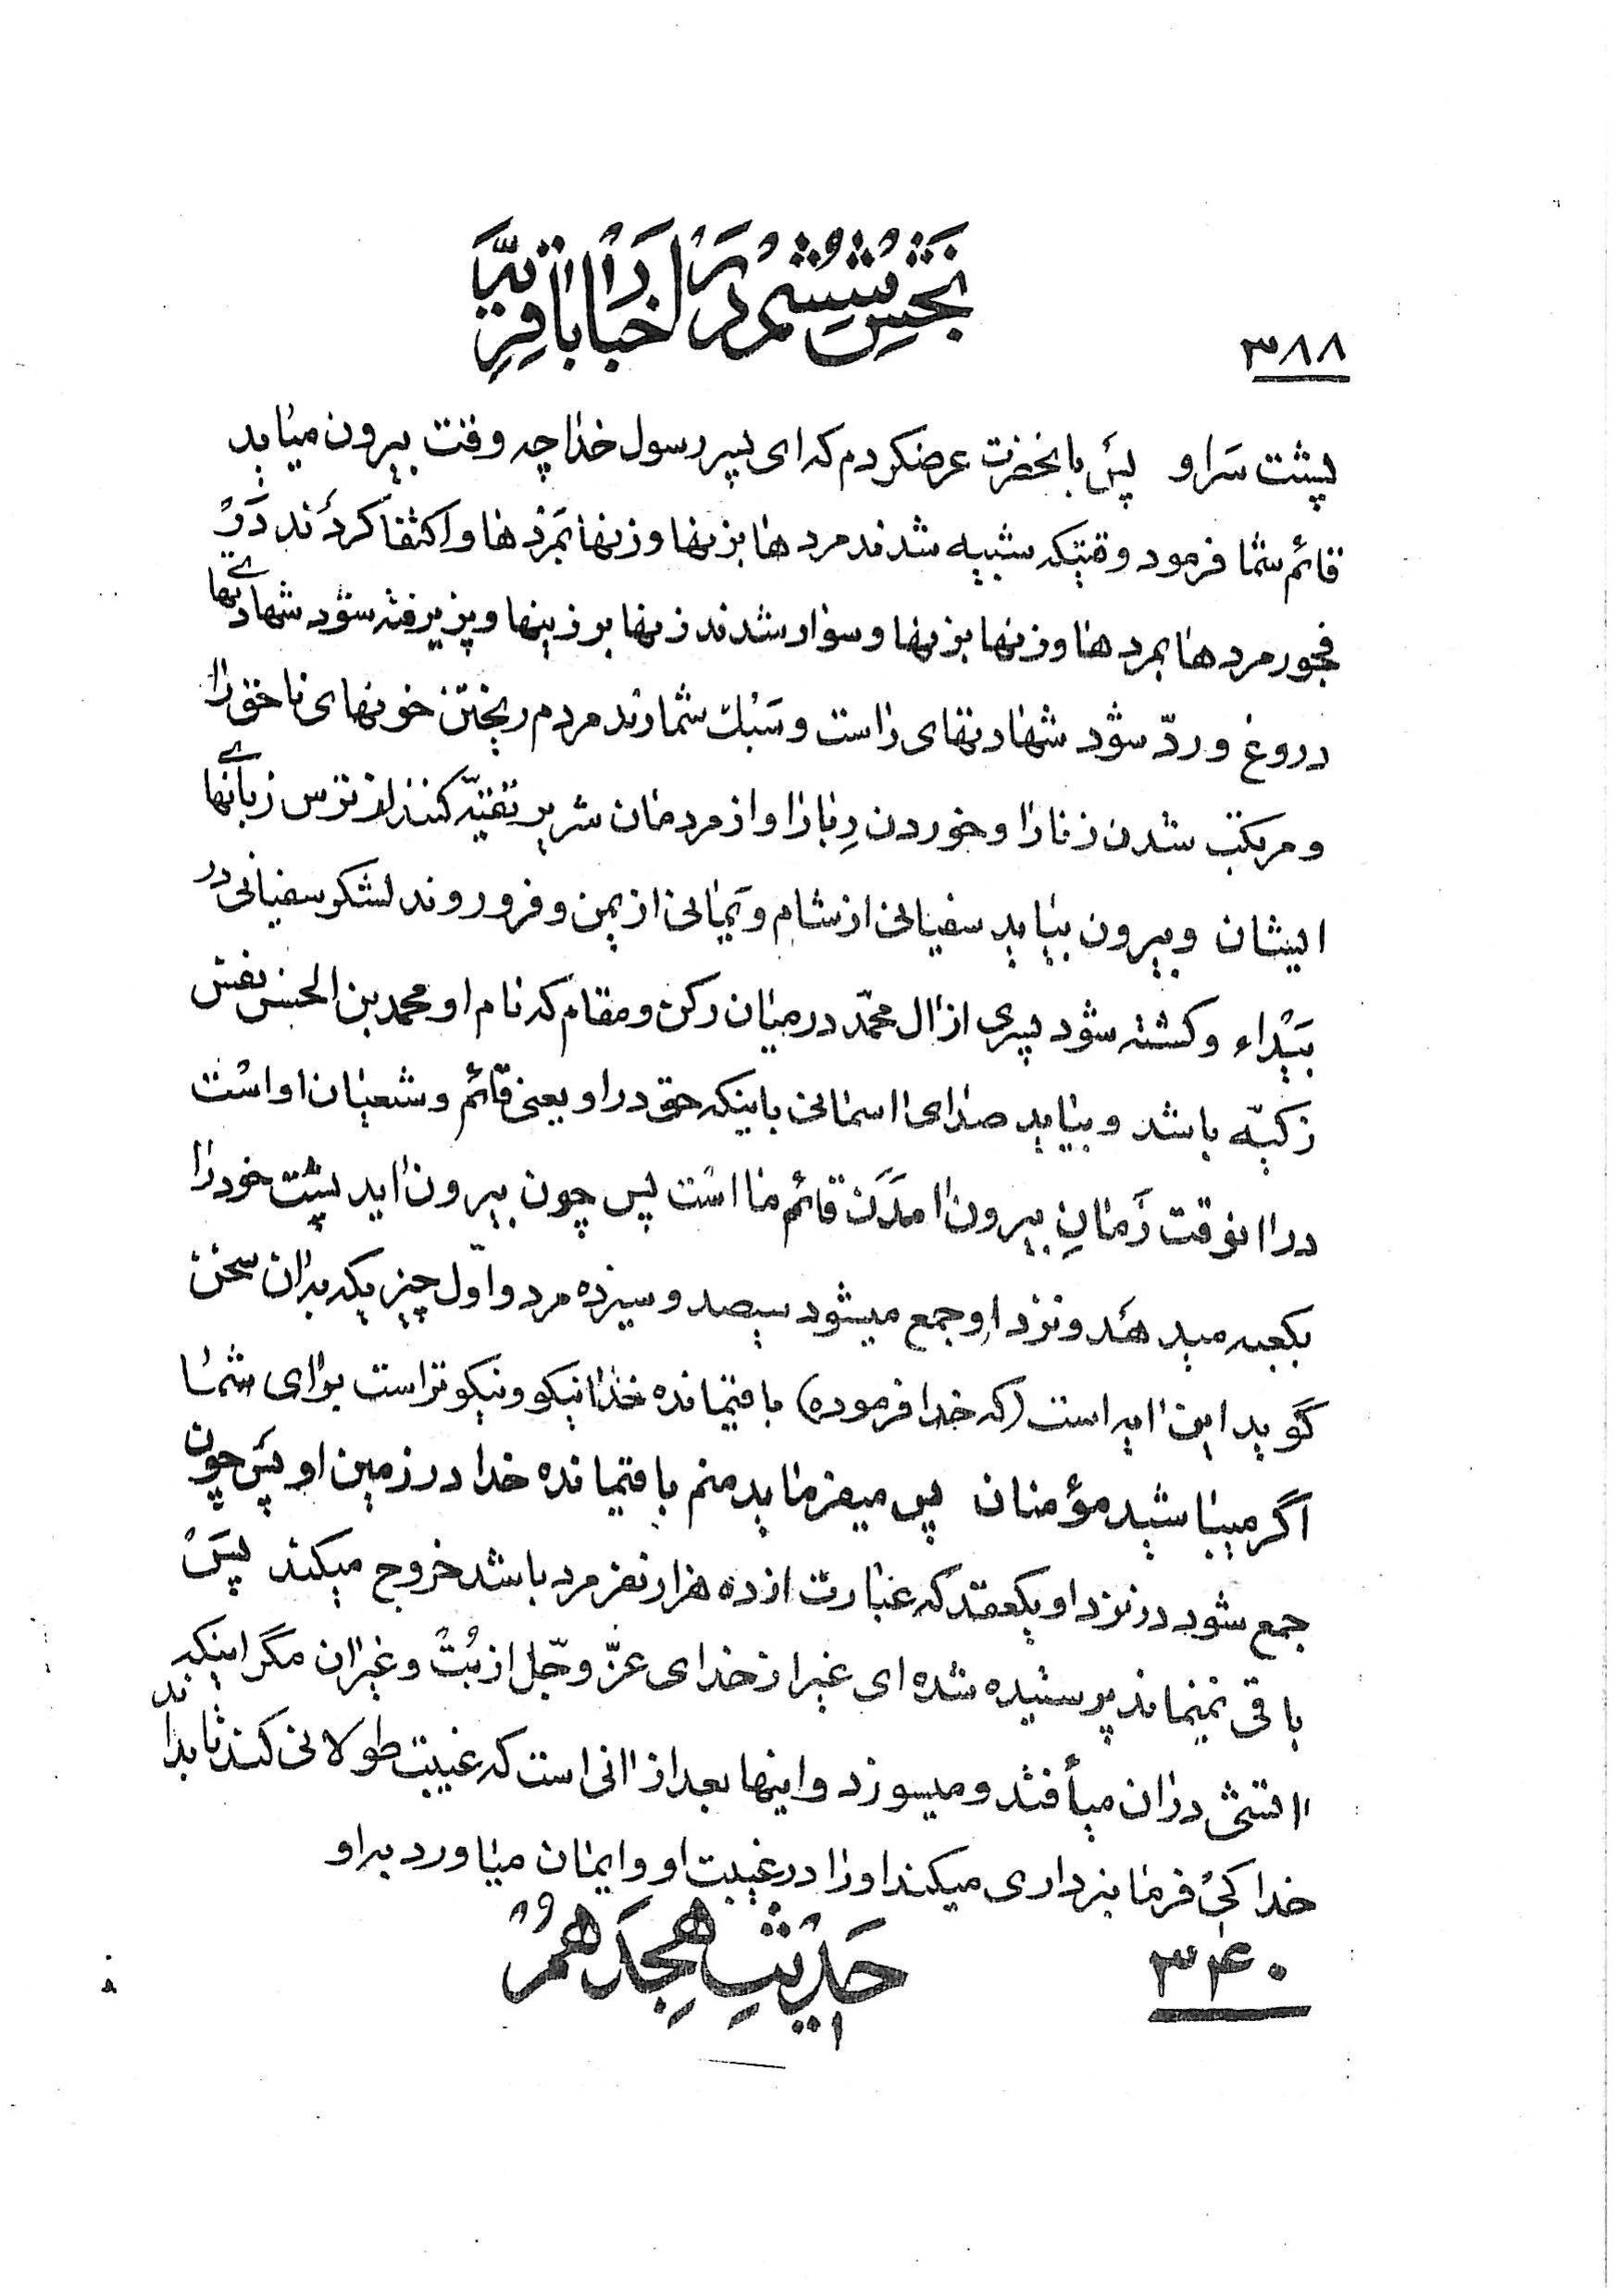 بخش ششم در اخبار باقریّه
٣٨٨
پشت سَر او پس بانحضرت عرضکردم که ای پسر رسول خدا چه وقت بیرون میاید
قائم شما فرمود وقتیکه شبیه شدند مردها بزنها و زنها بمَردها و اکتفا کردند دَر
فجور مردها بمردها و زنها بزنها و سوار شدند زنها بر زینها و پزیرفته شود شهادتهای
دروغ و ردّ شود شهادتهای راست و سَبُک شمارند مردم ریختن خونهای ناحق را
و مرتکب شدن زنا را و خوردن رِبا را و از مردمان شریر تقیّه کنند از ترس زبانهای
ایشان و بیرون بیاید سفیانی از شام و یَمانی از یمن و فرو روند لشکر سفیانی در
بَیْداء و کشته شود پسری از ال محمّد در میان رکن و مقام که نام او محمد بن الحسن نفس
زکیّه باشد و بیاید صدای اسمانی باینکه حق در او یعنی قائم و شعیان او است
در انوقت زَمانِ بیرون امدَن قائم ما است پس چون بیرون اید پشت خود را
بکعبه میدهد و نزد او جمع میشود سیصد و سیزده مرد و اوّل چیزیکه بدان سخن
گوید این ایه است (که خدا فرموده) باقیمانده خدا نیکو و نیکوتر است برای شما
اگر میباشید مؤمنان پس میفرماید منم باقیمانده خدا در زمین او پس چون
جمع شود در نزد او یکعقد که عبارت از ده هزار نفر مرد باشد خروج میکند پس
باقی نمیماند پرستیده شده ای غیر از خدای عزّ و جّل از بُت و غیر ان مگر اینکه
اتشی در ان میأفتد و میسوزد و اینها بعد از انی است که غیبت طولانی کند تا بداند
خدا کی فرمانبرداری میکند او را در غیبت او و ایمان میاورد به او
حَدیث هِجدَهُم
٣۴٠